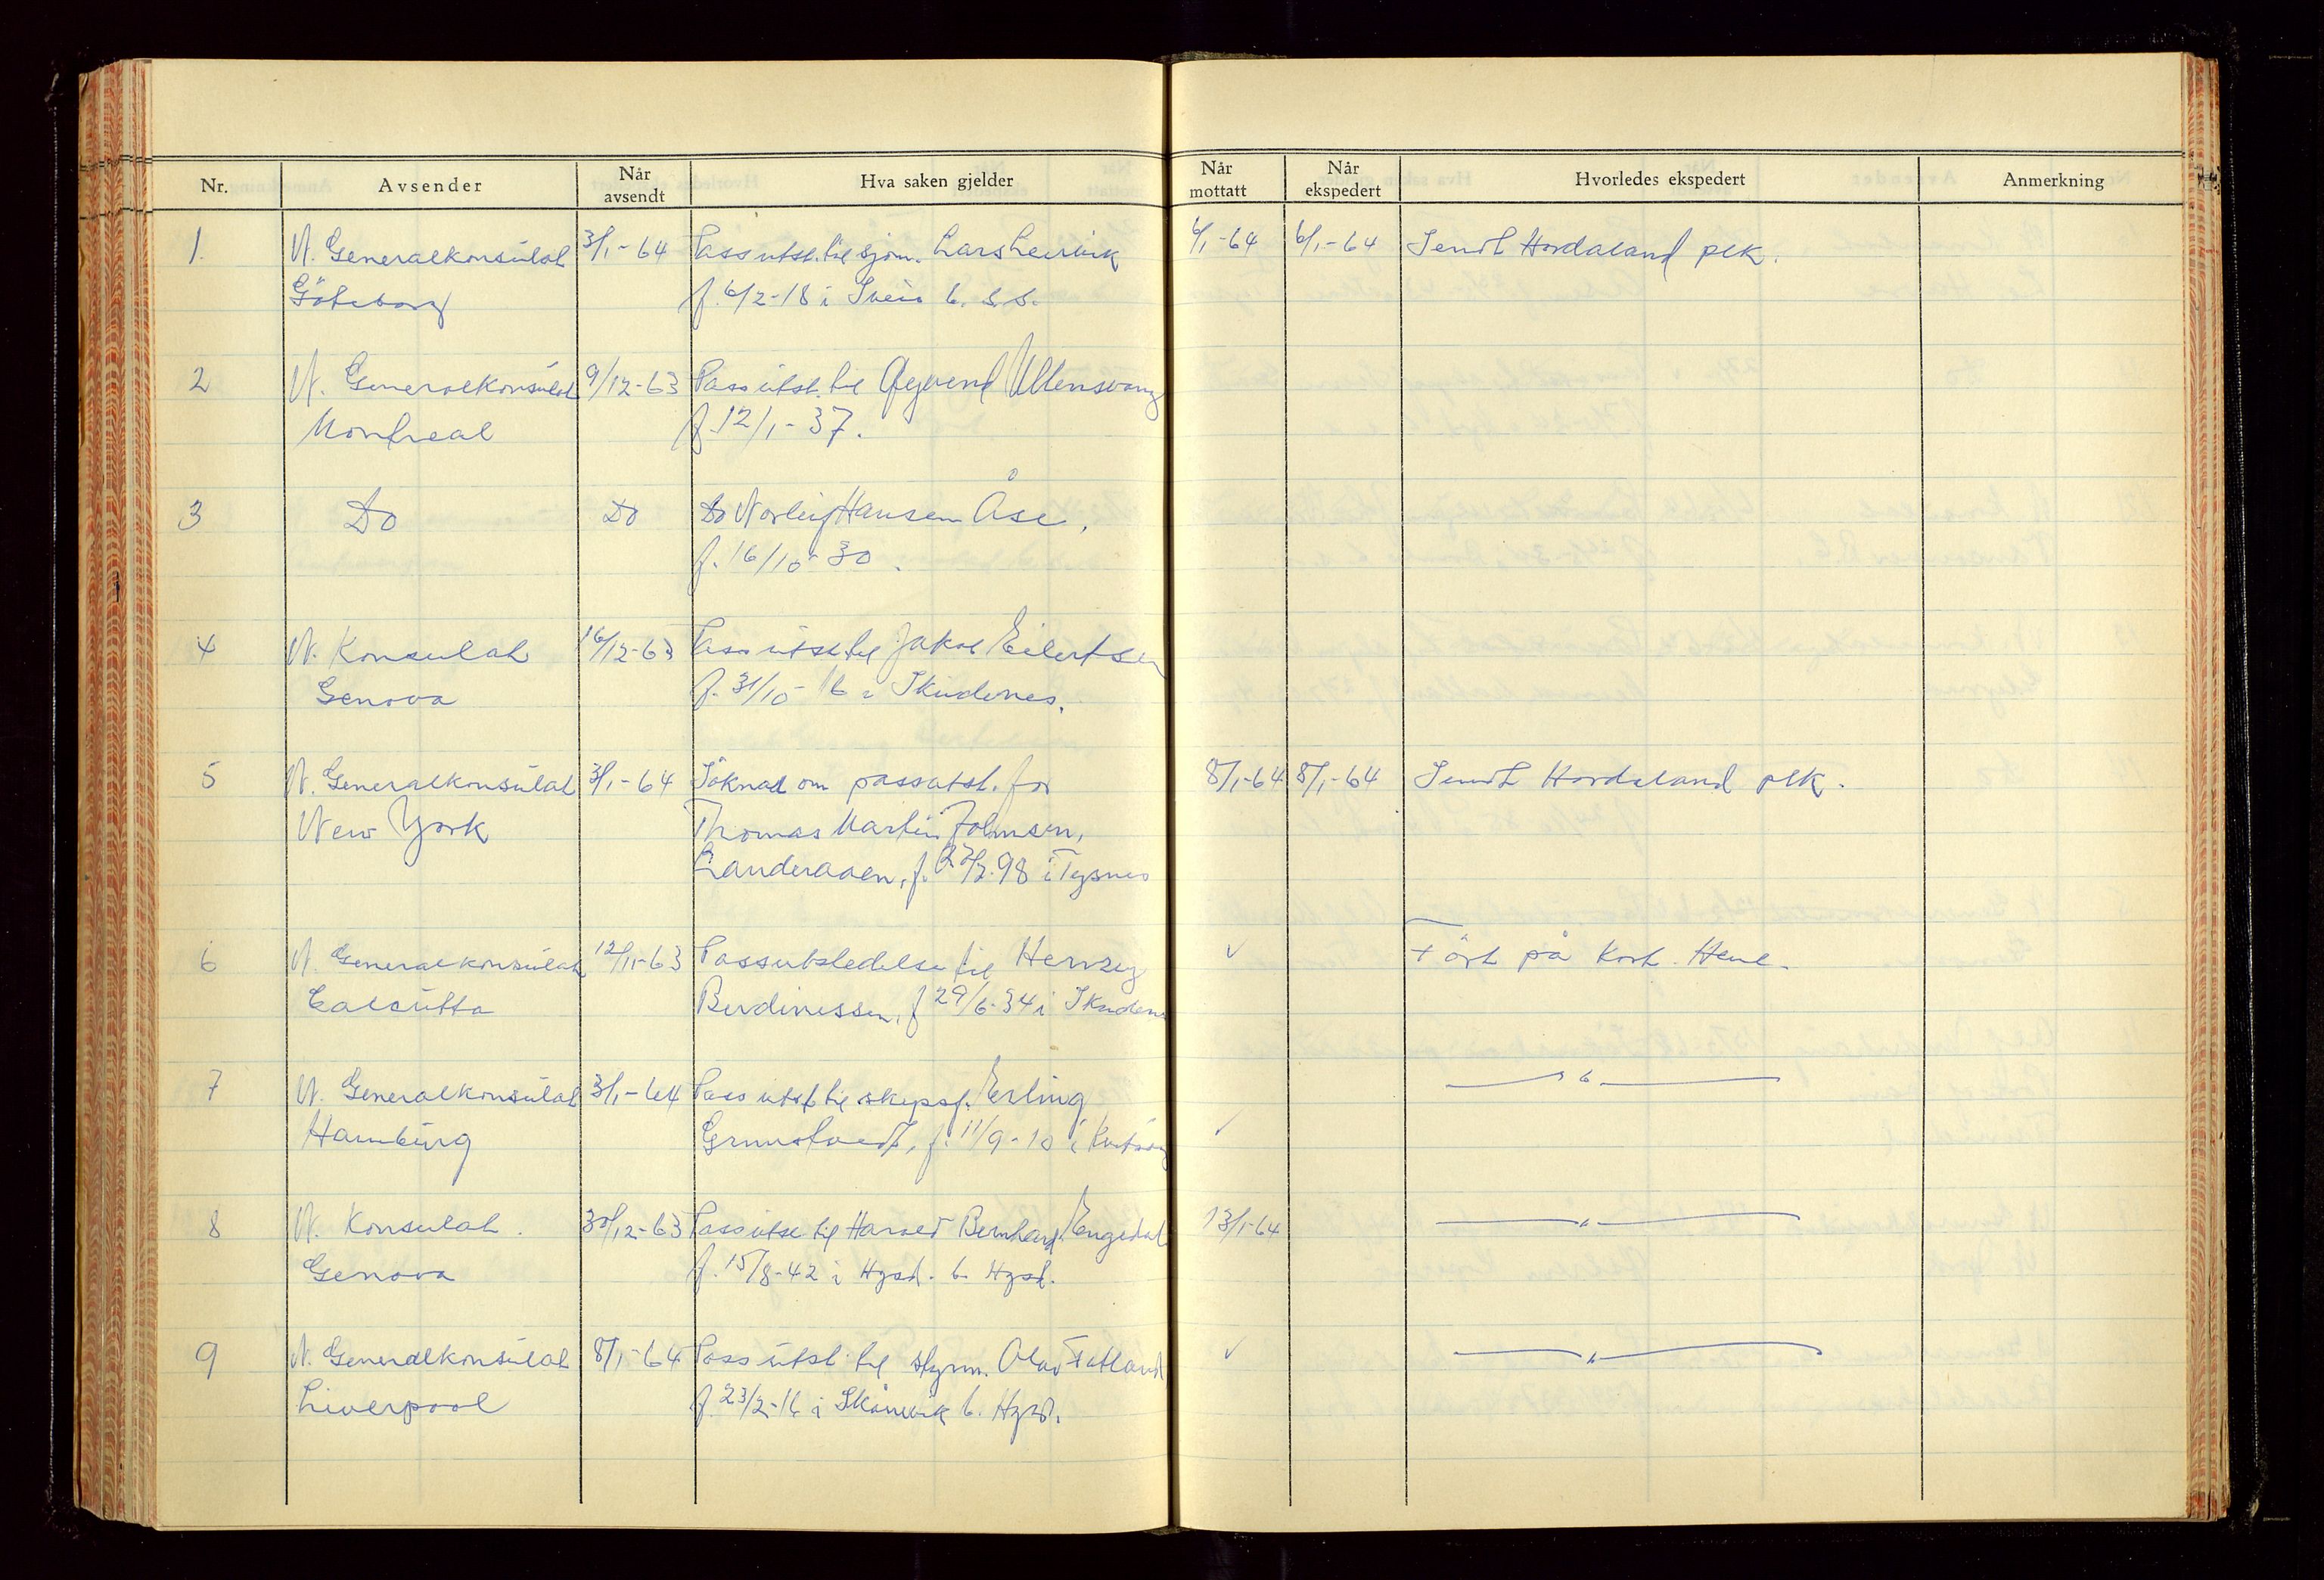 Nr. Avsender Når avsendt Hva saken gjelder Når mottatt Når ekspedert Hvorledes ekspedert Anmerkning
1. N. Generalkonsulat 3/1-64 Pass utst. til sjøm. Lars Leirvik 6/1-64 6/1-64 Sendt Hordaland plk.
Göteborg f. 6/2-18 i Sveio b. s.s.
2 N. Generalkonsulat 9/12-63 Pass utst. til Øyvend Ullensvang
Montreal f. 12/1-37.
3 Do Do Do Norleif Hansen Åse.
f. 16/10-30.
4 N. Konsulat 16/12-63 Pass utst. til Jakob Eilertsen
Genova f. 31/10-16 i Skudenes.
5 N. Generalkonsulat 3/1-64 Söknad om passutst. for 8/1-64 8/1-64 Sendt Hordaland plk.
New York Thomas Martin Johnsen,
Landeraaen, f. 27/7.98 i Tysnes
6 N. Generalkonsulat 12/11-63 Passutstedelse til Herveg Fört på kort. Henl.
Calcutta Berdinessen, f 29/6-34 i Skuden
7 N. Generalkonsulat 3/1-64 Pass utst til skipsf. Erling
Hamburg f. 11/9-10 i
8 N. Konsulat. 30/12-63 Pass utst til Harald Bernhard Engedal 13/1-64
Genova f. 15/8-42 i Hgsd. b. Hgsd.
9 N. Generalkonsulat 8/1-64 Pass utst. til styrm. Olav Fatland
Liverpool f. 23/2-16 i Skånevik b. Hgsd.